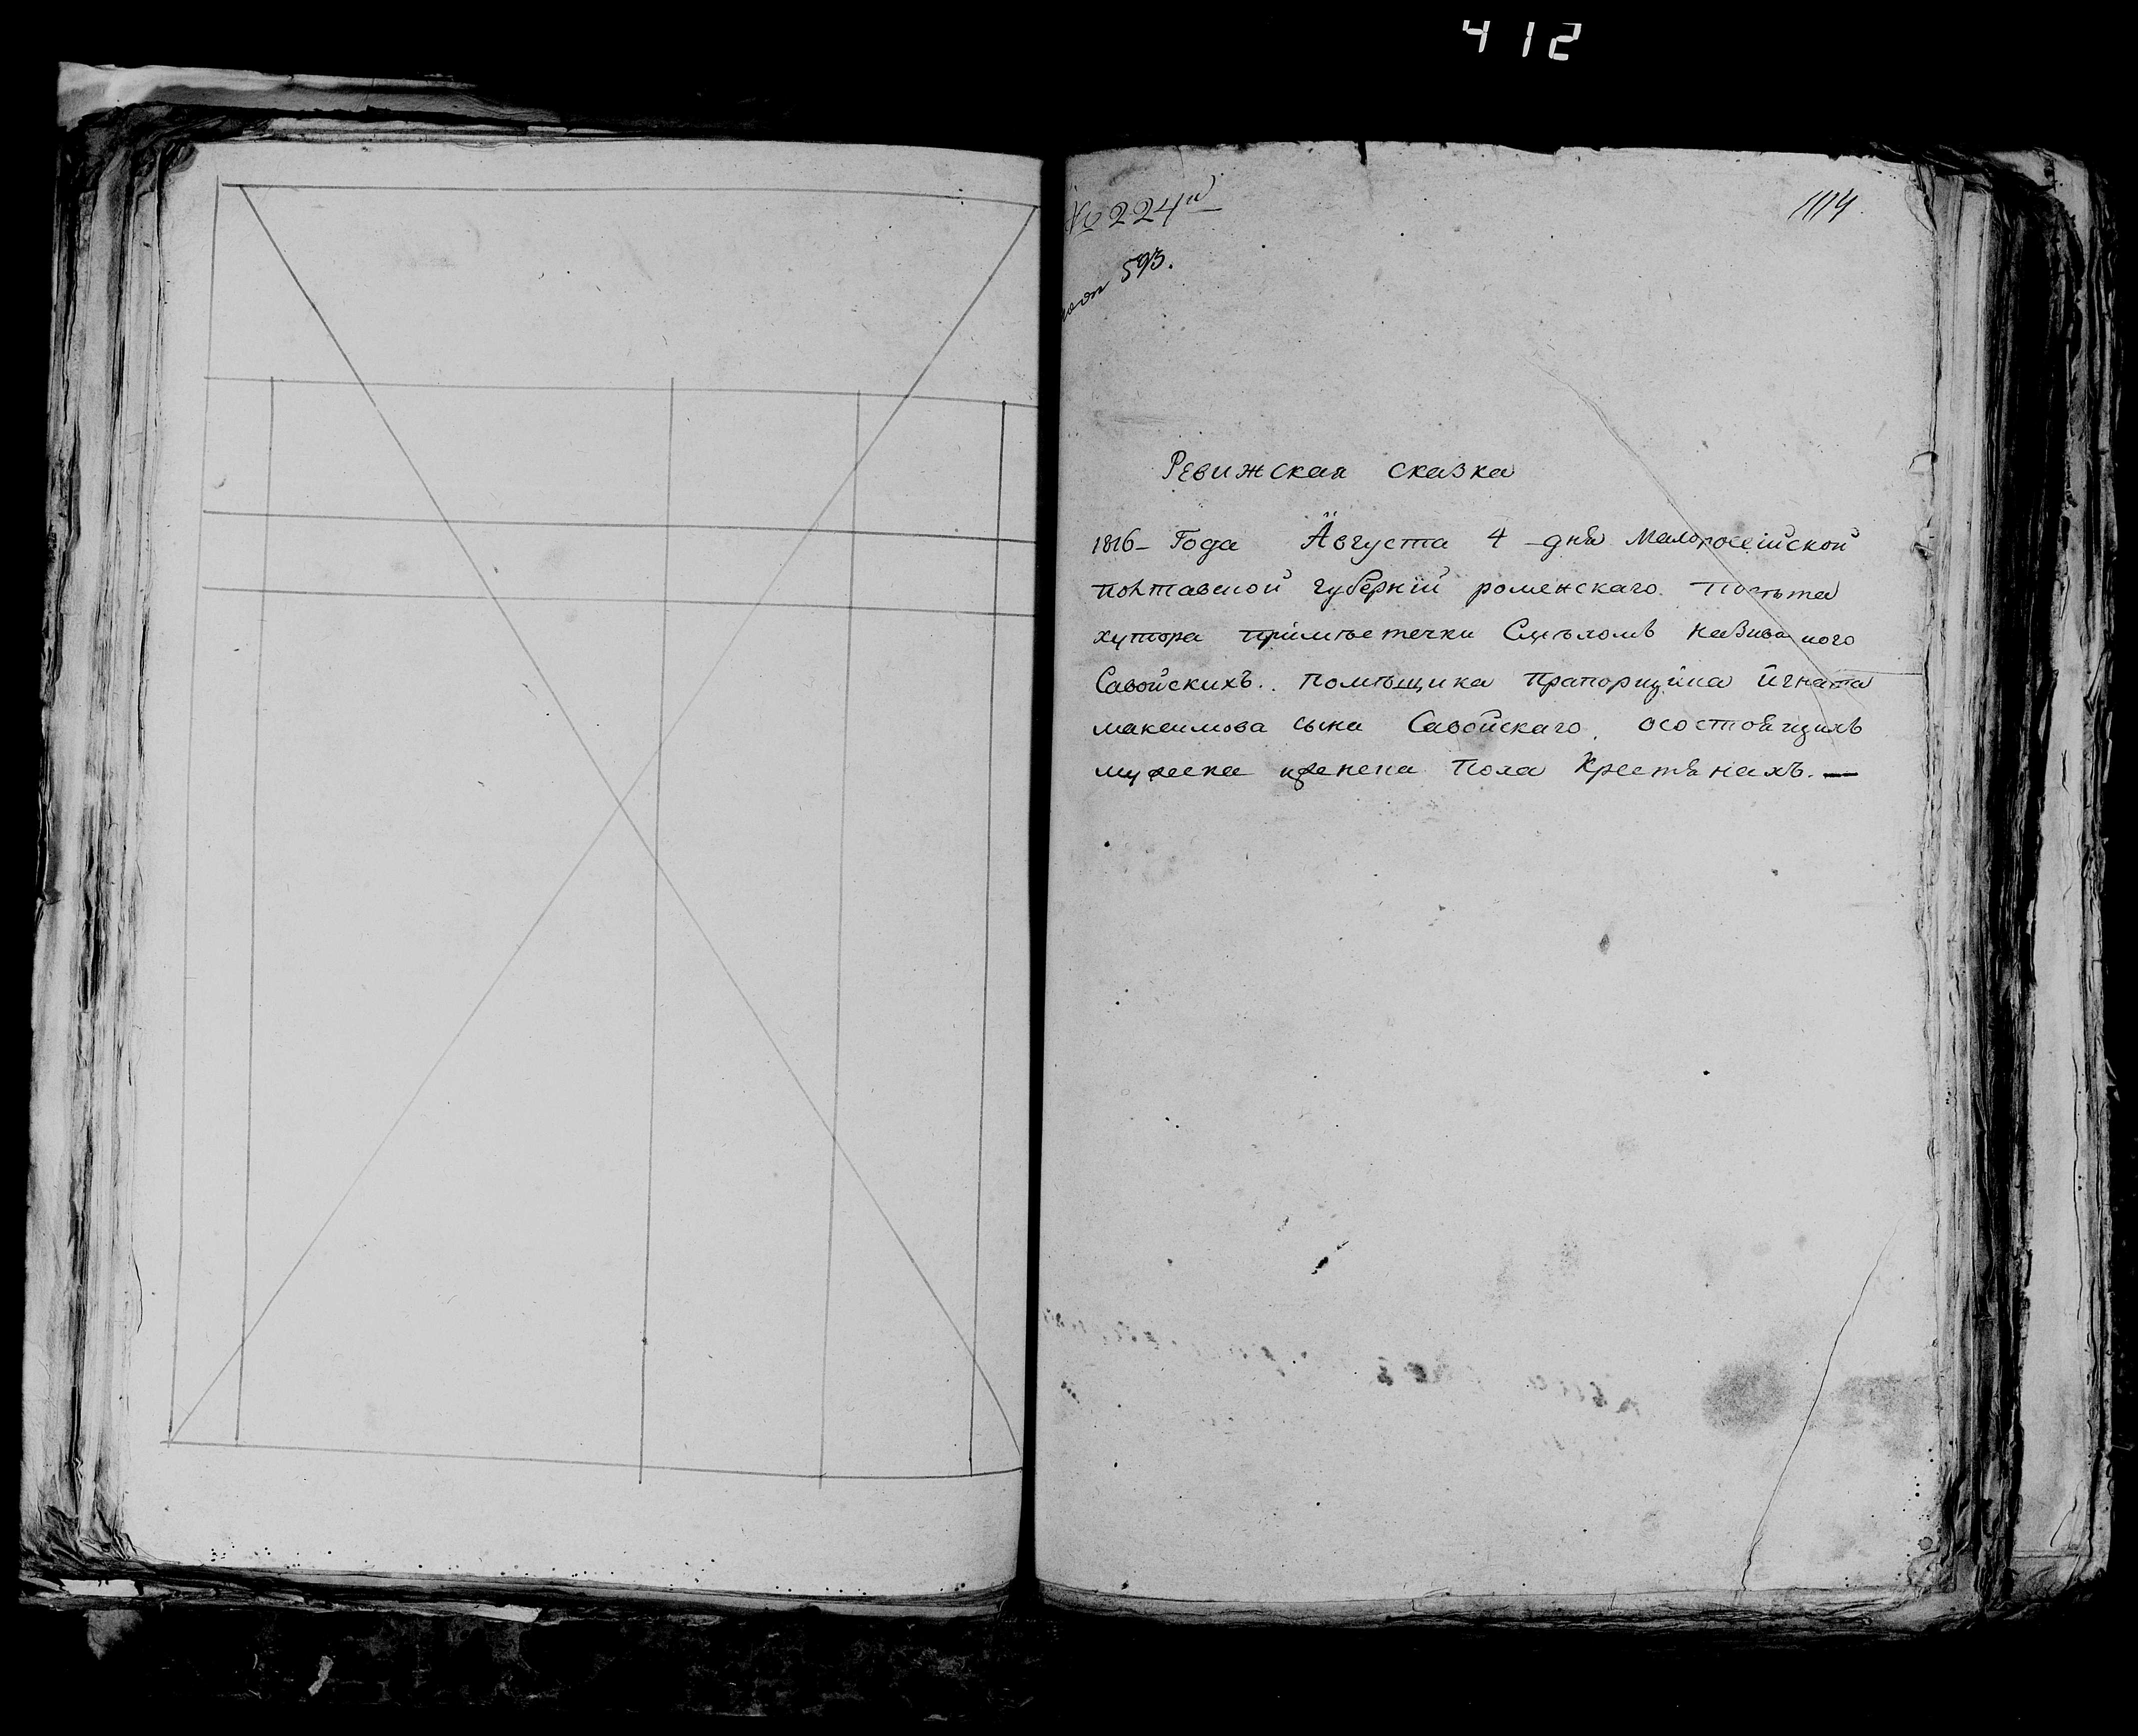 412
№ 224й
1114.
593.
Ревижская сказка
1816- Года Августа 4 дня Малоросейской
полтавской губернїи роменскаго повѣта
хутора примѣстечки Смѣломъ називаного
Савойскихъ. помѣщика Прапорщика Игната
максимова сына Савойскаго. осостоящихъ
мужеска иженска Пола Крестянахъ. —